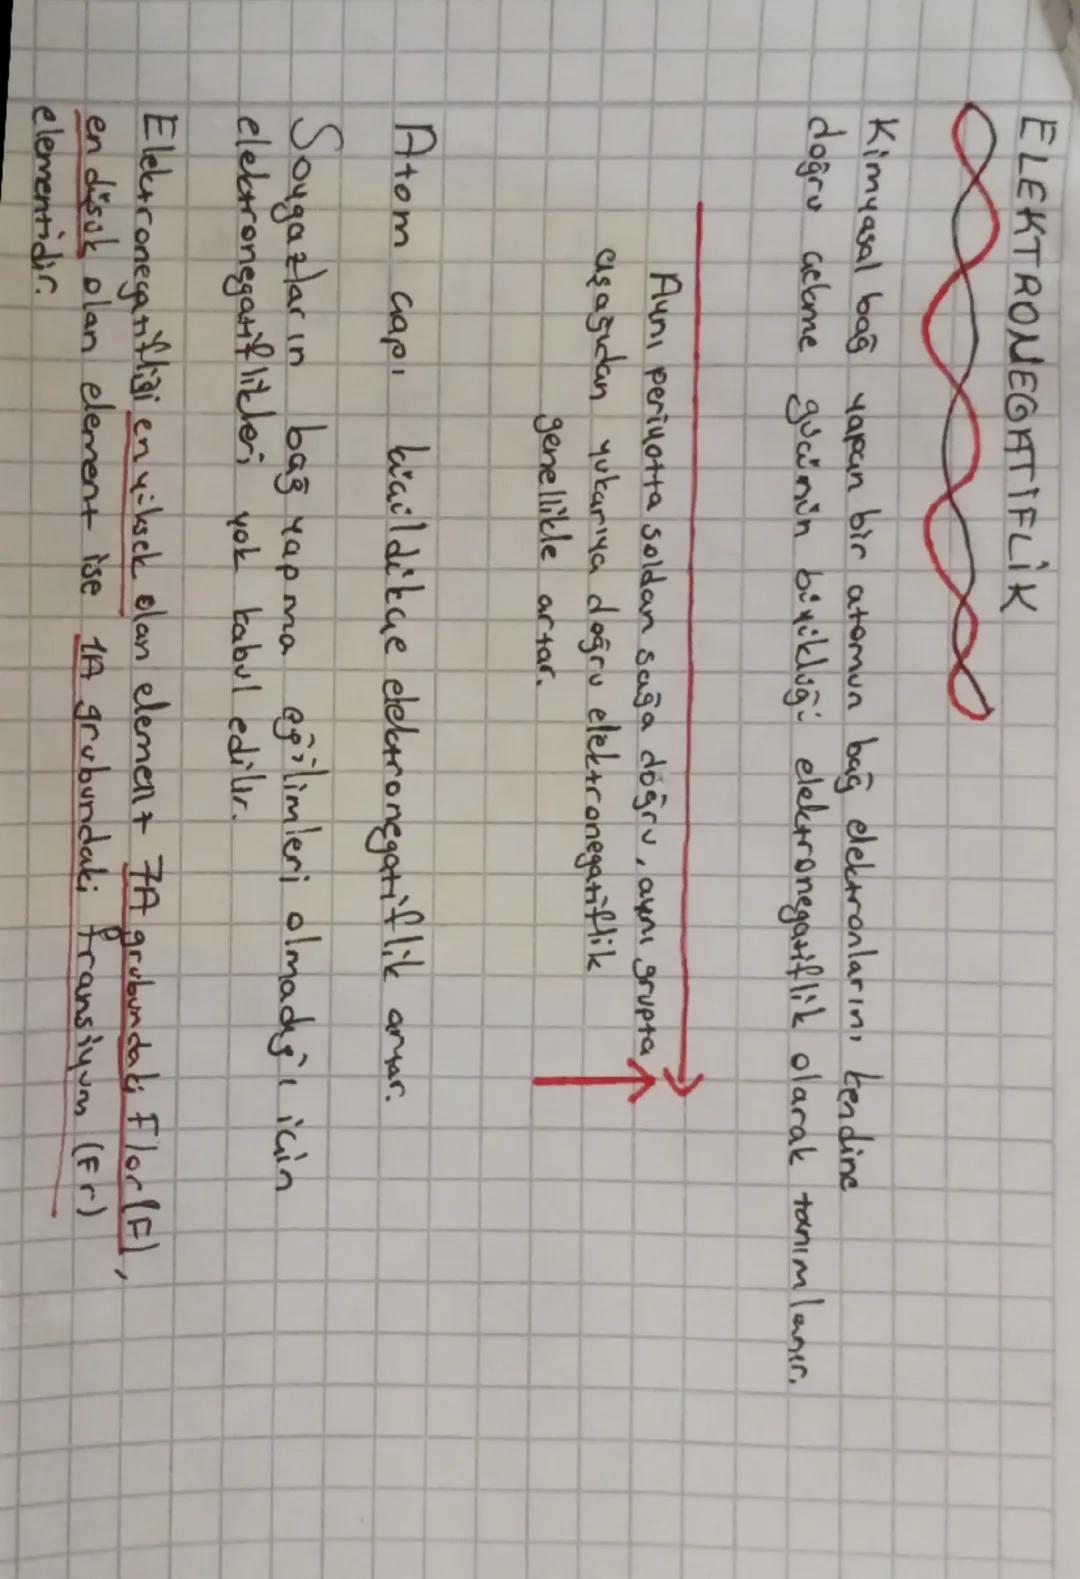 ELEKTRONEGATIFLİK
Kimyasal bağ yapan bir atomun bağ elektronlarını kendine
doğru çekme gücünün büyüklüğü elektronegatiflik olarak tanımlanır.
Aynı periyotta soldan sağa doğru, aynı grupta
aşağıdan yukarıya doğru elektronegatiflik
genellikle artar.
Atom çapı küçüldükçe elektronegatiflik artar.
Soygazların bağ yapma eğilimleri olmadığı için
elektronegatiflikleri yok kabul edilir.
Elektronegatifliği en yüksek olan element 7A grubundaki Flor(F),
en düşük olan element ise 1A grubundaki fransiyum (Fr)
elementidir.